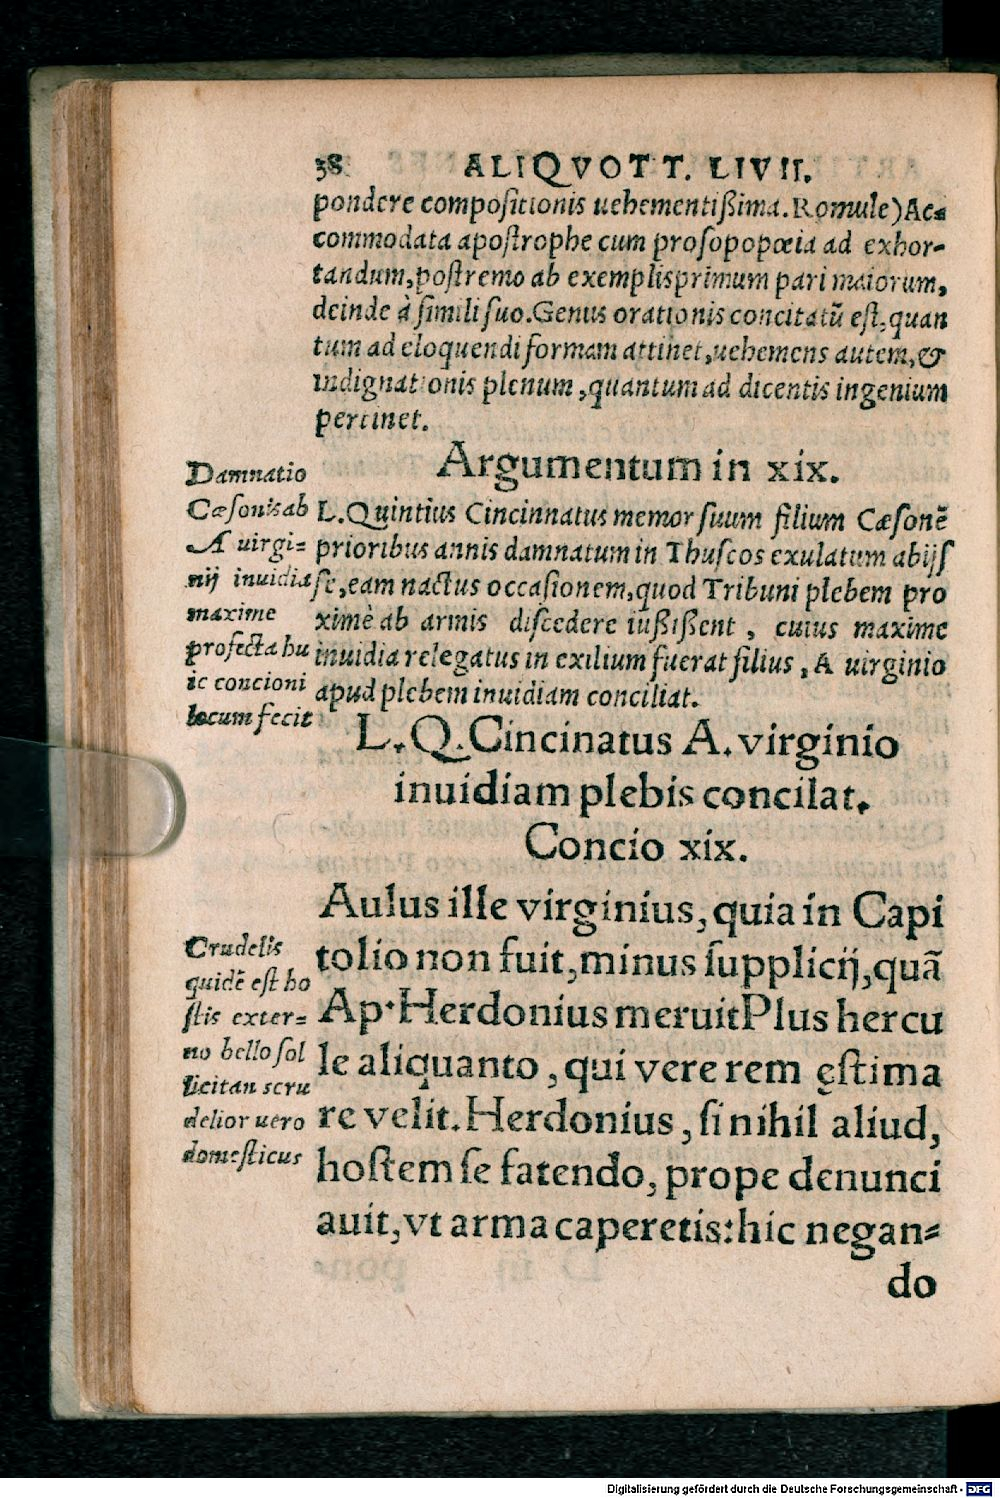 38 ALIQVOT T. LIVII.
pondere compositionis uehementißima. Romule) Ac-
commodata apostrophe cum prosopopœia ad exhor-
tandum, postremo ab exemplis primum pari maiorum,
deinde à simili suo. Genus orationis concitatũ est, quan
tum ad eloquendi formam attinet, uehemens autem, &
indignationis plenum, quantum ad dicentis ingenium
pertinet.
Argumentum in xix.
L. Quintius Cincinnatus memor suum filium Cæsonẽ
prioribus annis damnatum in Thuscos exulatum abijs
se, eam nactus occasionem, quod Tribuni plebem pro
ximè ab armis discedere iußißent, cuius maxime
inuidia relegatus in exilium fuerat filius, A uirginio
apud plebem inuidiam conciliat.
Damnatio
Cæsonis ab
A uirgi=
nij inuidia
maxime
profecta hu
ic concioni
locum fecit
L. Q. Cincinatus A. virginio
inuidiam plebis concilat.
Concio xix.
Aulus ille virginius, quia in Capi
tolio non fuit, minus supplicij, quã
Ap. Herdonius meruit Plus hercu
le aliquanto, qui vere rem ęstima
re velit. Herdonius, si nihil aliud,
hostem se fatendo, prope denunci
auit, vt arma caperetis: hic negan=
do
Crudelis
quidẽ est ho
stis exter=
no bello sol
licitan scru
delior uero
domesticus
Digitalisierung gefördert durch die Deutsche Forschungsgemeinschaft - DFG